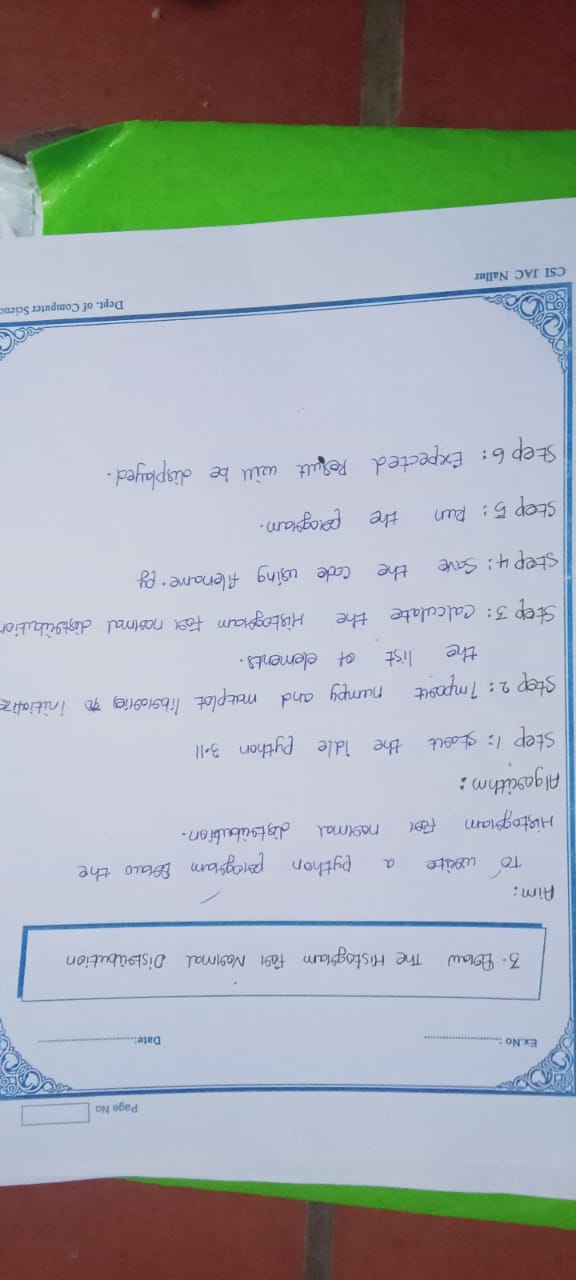 Page No
Ex.No :
Date:
3. Draw The Histogram For Normal Distribution
Aim:
To write a python program Draw the
Histogram for normal distribution.
Algorithm:
Step 1: Start the Idle python 3.11
Step 2: Import numpy and matplot libraries to initialize
the list of elements.
Step 3: calculate the Histogram for normal distribution
Step 4: Save the code using filename.py
Step 5: Run the program.
Step 6: Expected Result will be displayed.
CSI JAC Nallur
Dept. of Computer Scienc